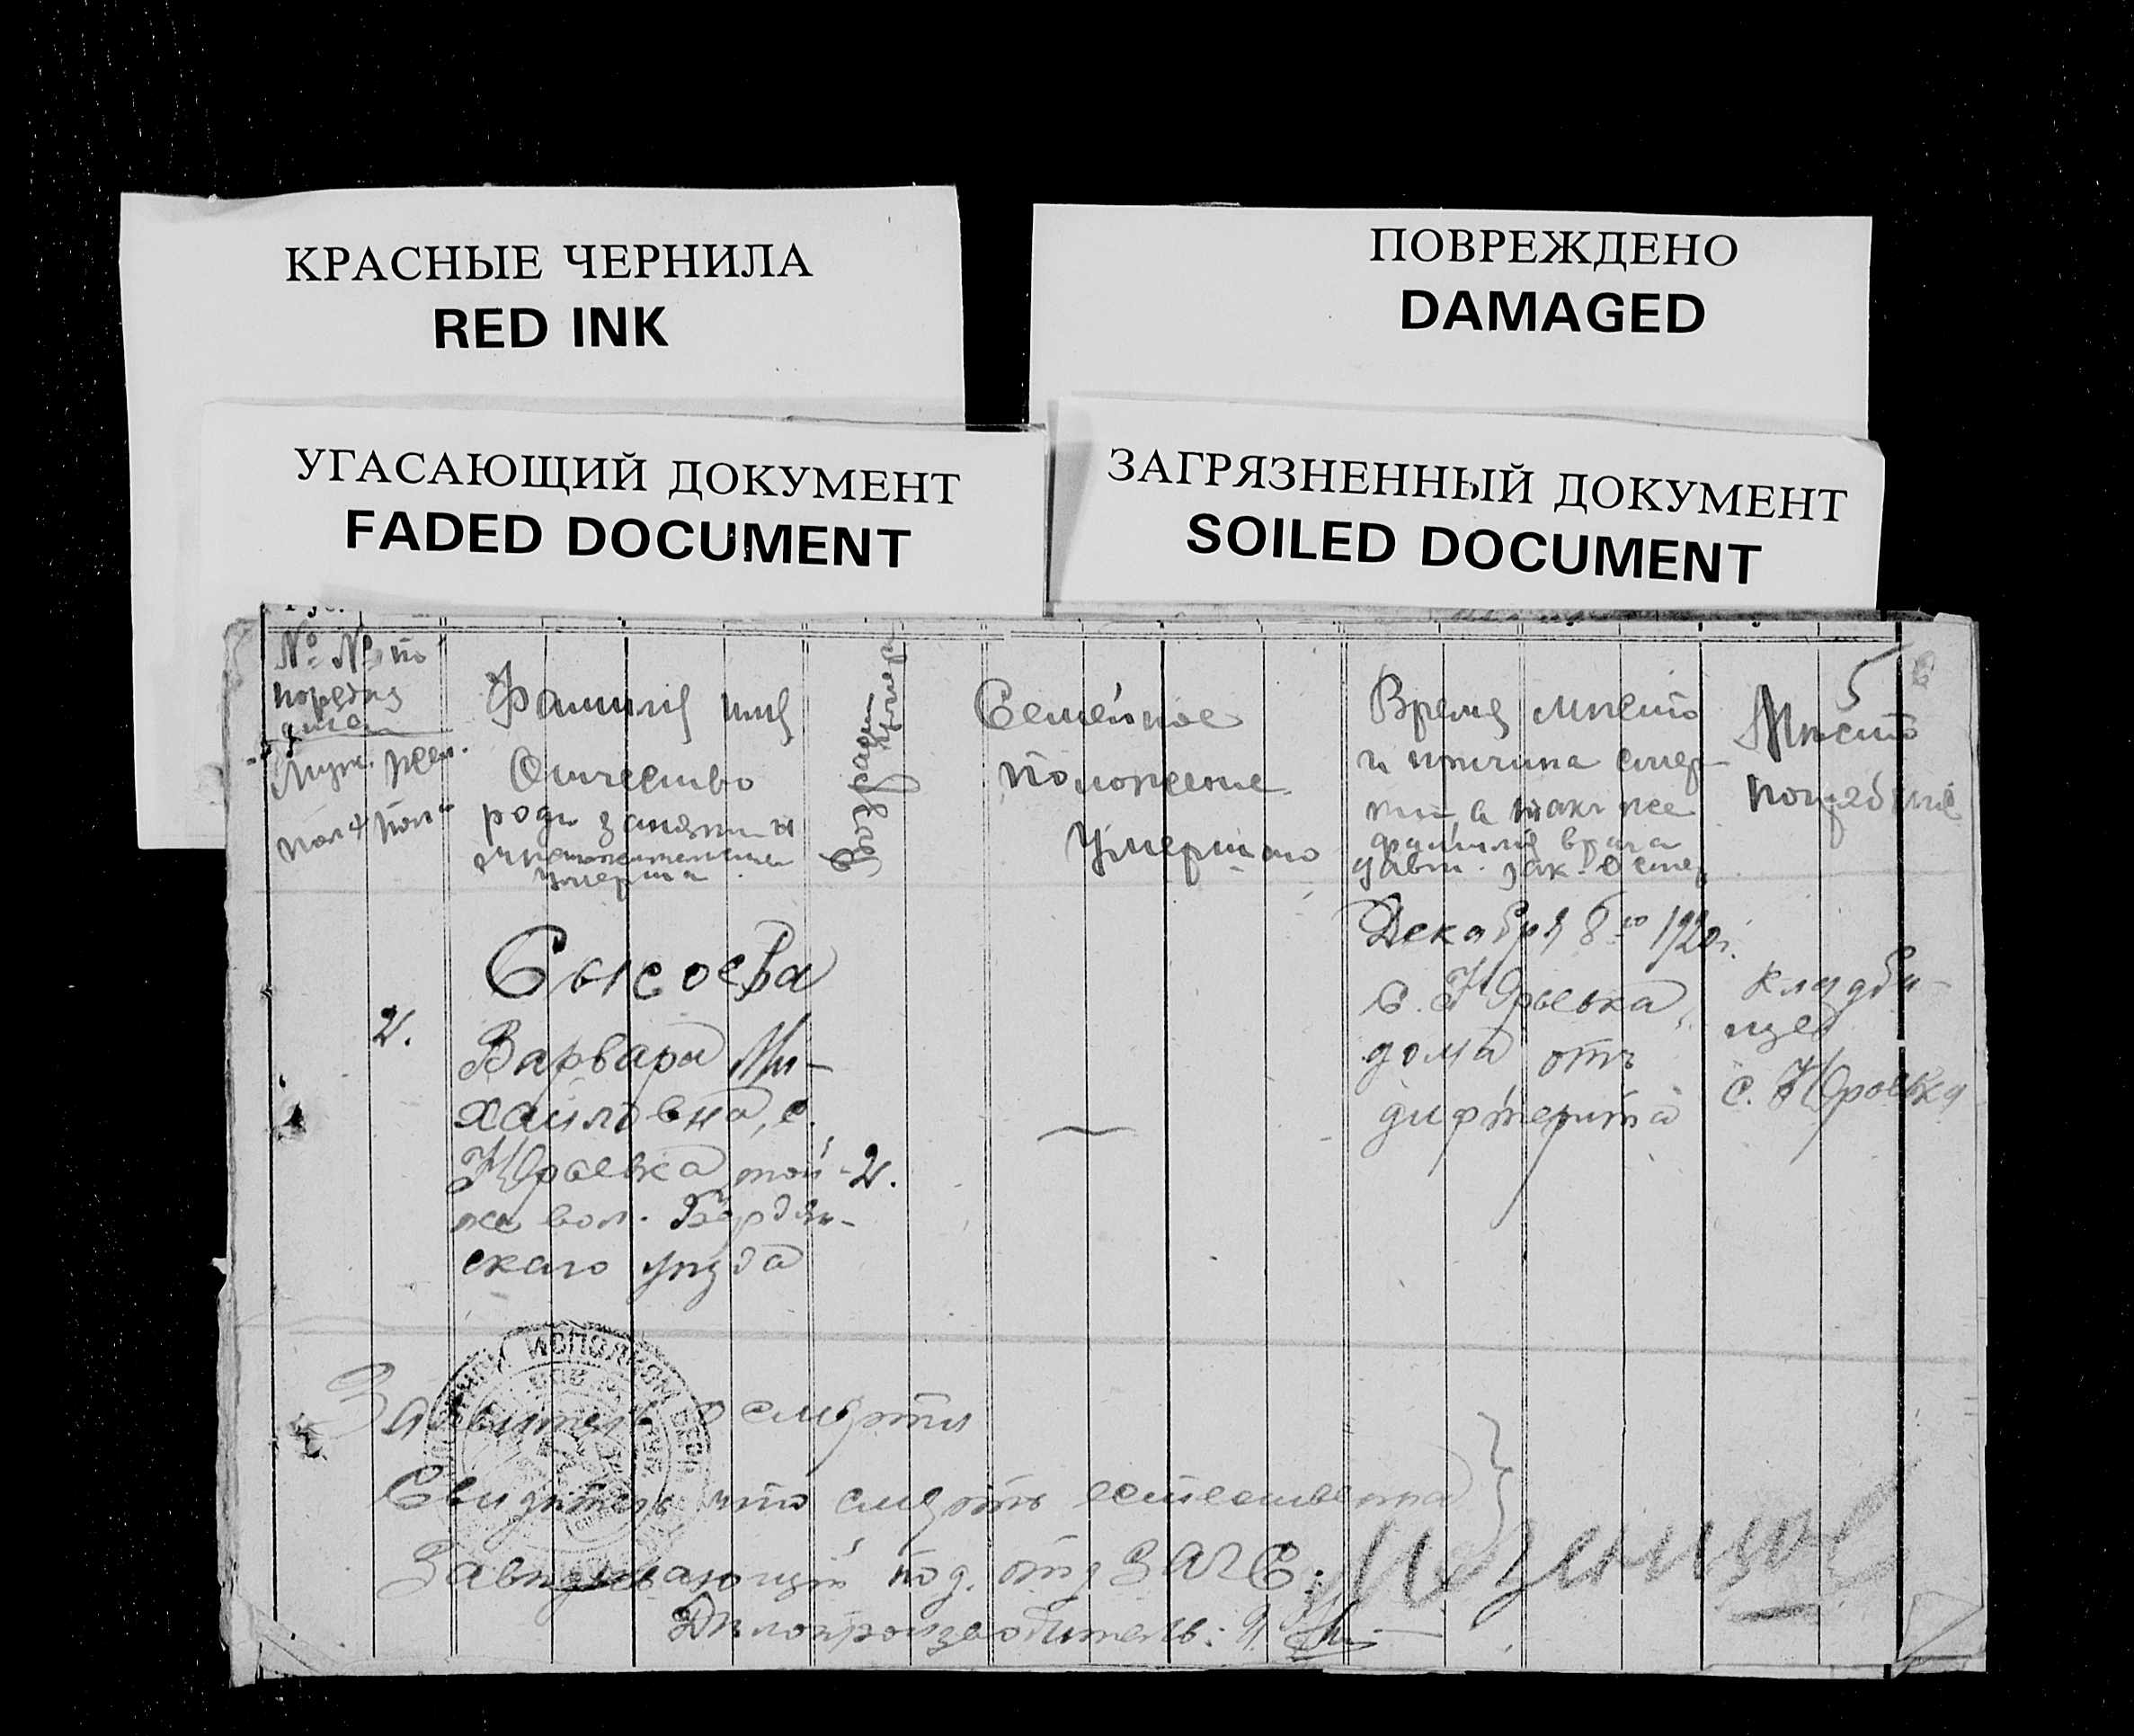 КРАСНЫЕ ЧЕРНИЛА
RED INK
ПОВРЕЖДЕНО
DAMAGED
УГАСАЮЩИЙ ДОКУМЕНТ
FADED DOCUMENT
ЗАГРЯЗНЕННЫЙ ДОКУМЕНТ
SOILED DOCUMENT
№ № по
Муж. Жен.
пола пола
Фамилия имя
Отчество
родъ занятия и
умерша
Возрастъ умерш
Семейное
положение
Умершаго
Время мѣсто
и причина смер-
ти а также
фамилия врача
Мѣсто
погребения
5
2.
Сысоева
Варвара Ми-
хайловна, с.
Юрьевка той-
же вол. Бердян-
скаго уѣзда
2.
Декабря 8го 1920г.
с. Юрьевка,
дома отъ
дифтерита
Кладби-
ще
с. Юрьевка
Заявитель о смерти
Свидѣтель что смерть естественна
Завѣдывающий под. отд ЗАГС:
Дѣлопроизводитель:
ИСПОЛКОМ